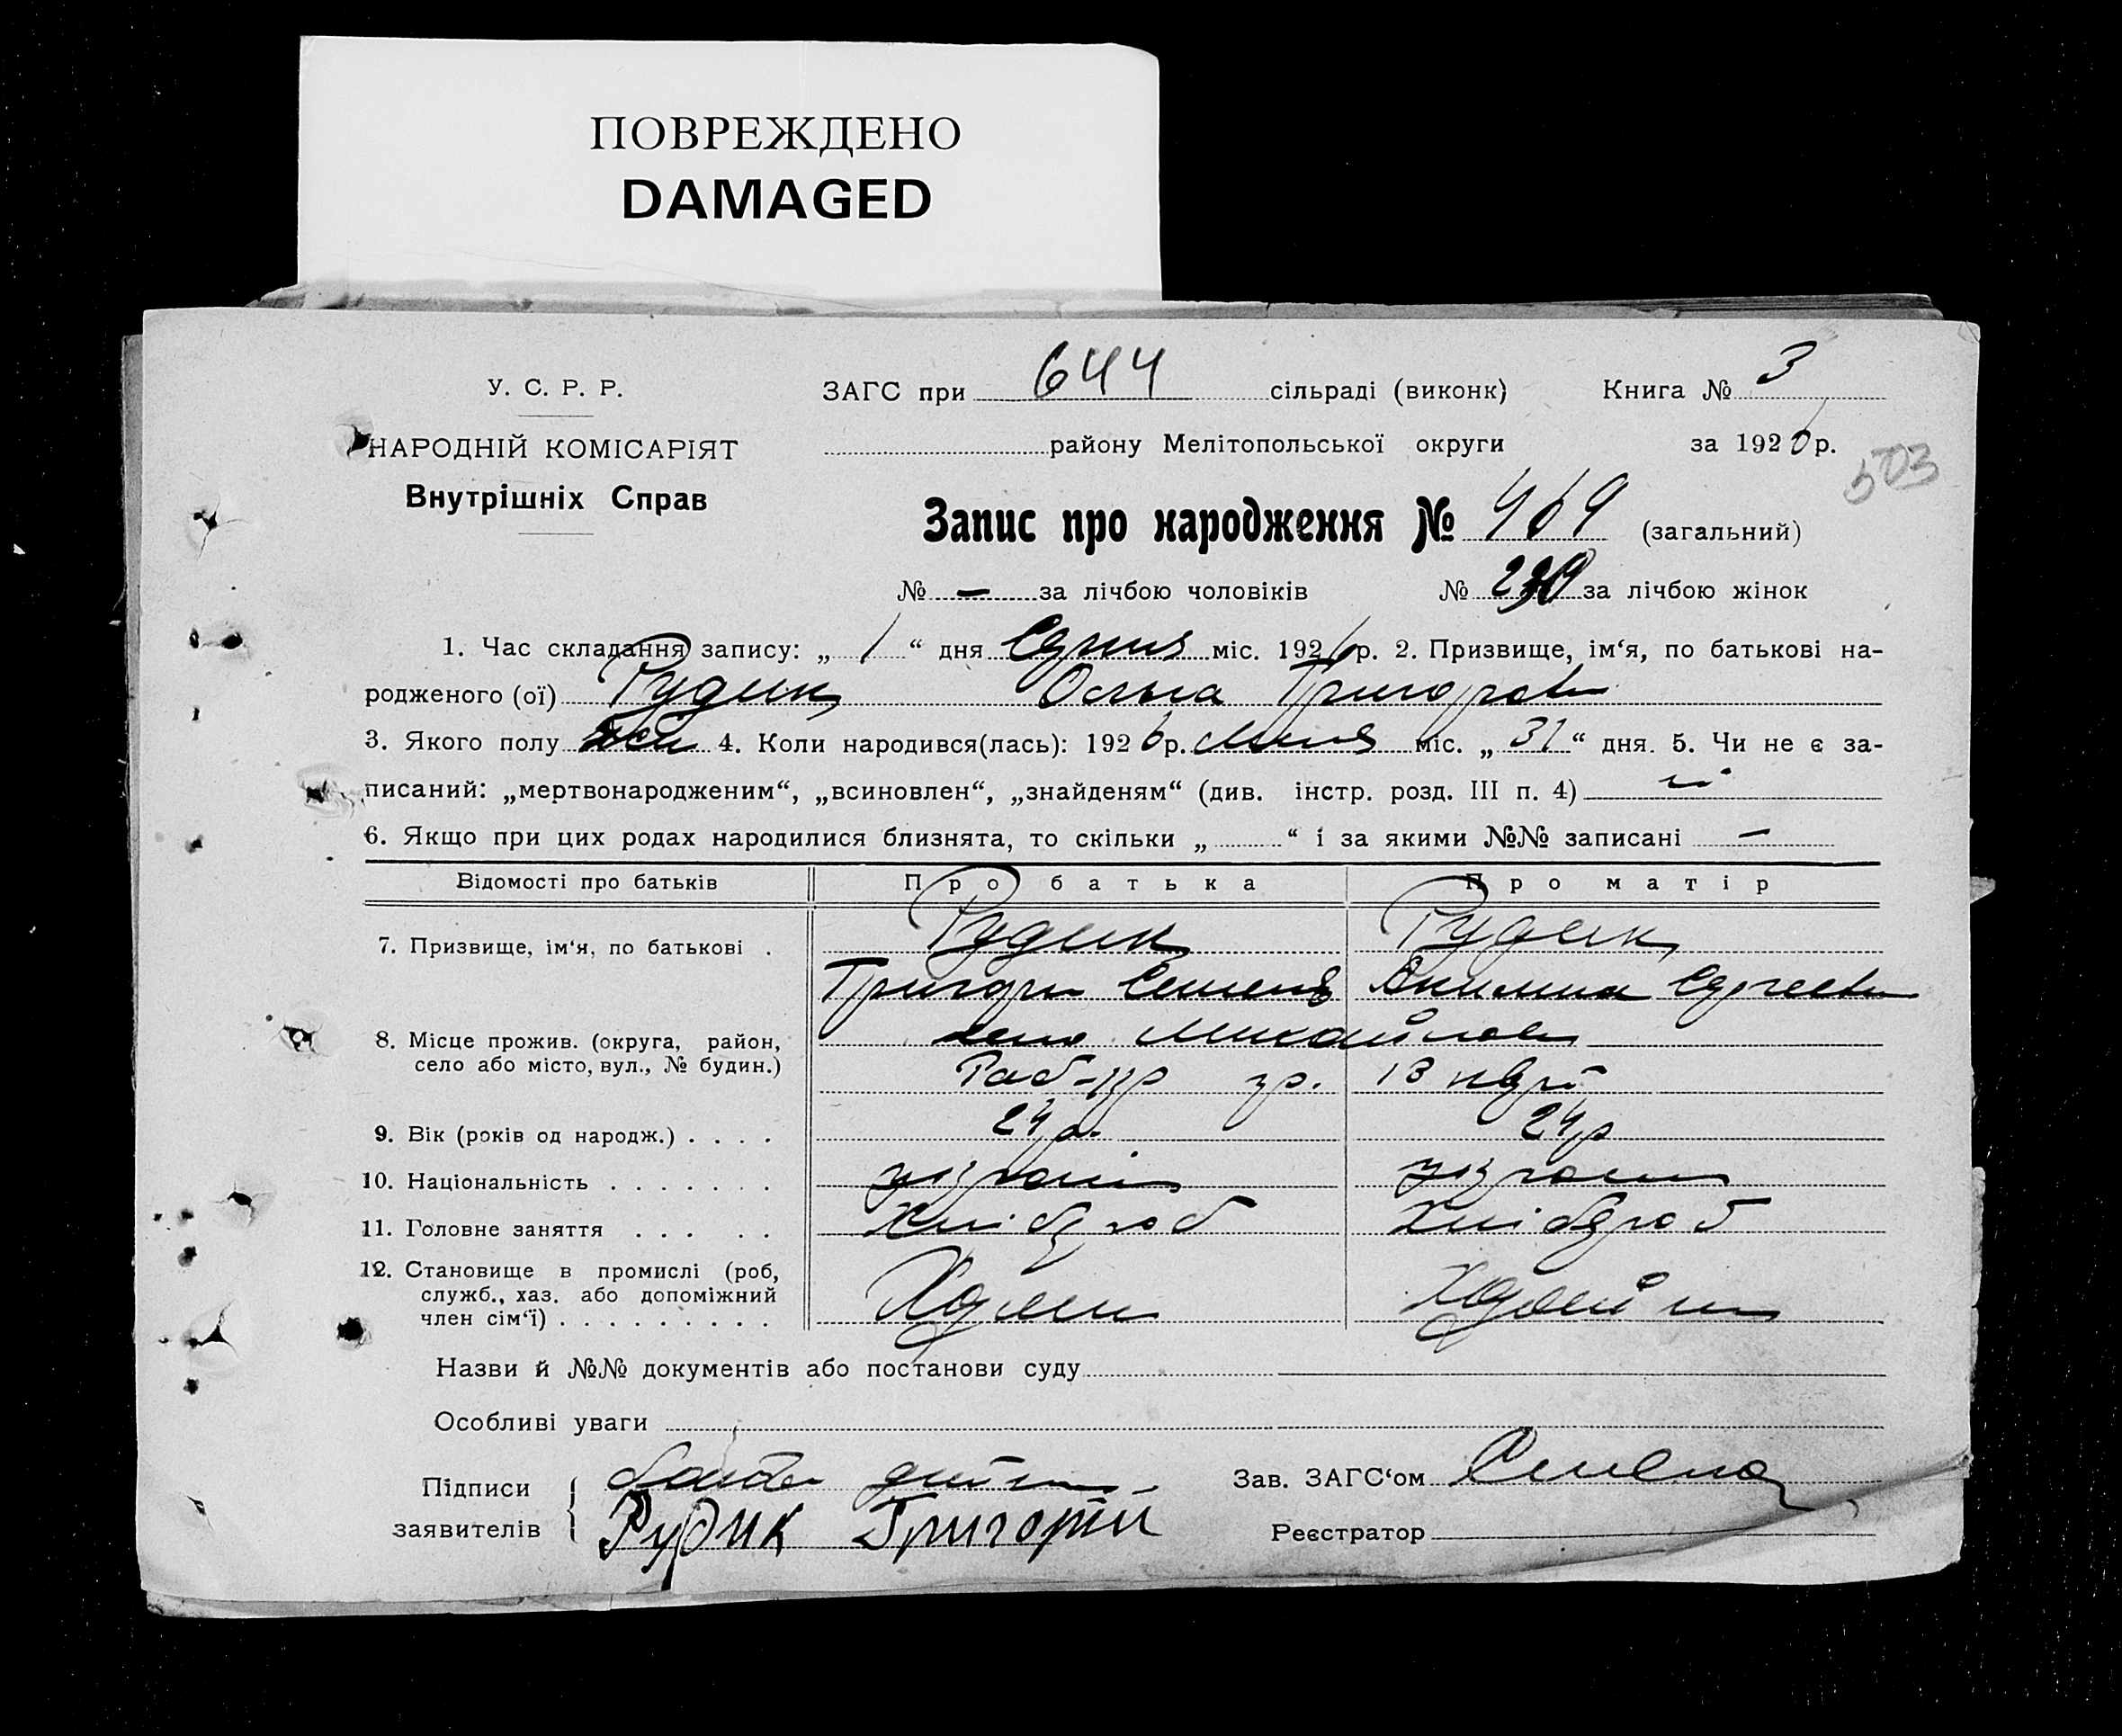 ПОВРЕЖДЕНО
DAMAGED
У. С. Р. Р.
НАРОДНІЙ КОМІСАРІЯТ
Внутрішніх Справ
ЗАГС при 644 сільраді (виконк) Книга № 3
району Мелітопольської округи за 1926 р.
503
Запис про народження № 469 (загальний)
№ — за лічбою чоловіків № за лічбою жінок
1. Час складання запису: „ 1 “ дня міс. 1926 р. 2. Призвище, ім‘я, по батькові на-
родженого (ої) Рудик Ольга Григоров
3. Якого полу 4. Коли народився(лась): 1926 р. міс. „ 31 “ дня. 5. Чи не є за-
писаний: „мертвонародженим“, „всиновлен“, „знайденям“ (див. інстр. розд. III п. 4)
6. Якщо при цих родах народилися близнята, то скільки „ “ і за якими №№ записані —
Відомості про батьків Про батька Про матір
7. Призвище, ім‘я, по батькові . Рудик Рудик
Григори Семенов
8. Місце прожив. (округа, район, село Михайлов
село або місто, вул., № будин.)
9. Вік (років од народж.) . . . . 24 р. 24 р
10. Національність . . . . . . .
11. Головне заняття . . . . . Хлібороб Хлібороб
12. Становище в промислі (роб,
служб., хаз. або допоміжний
член сім‘ї) . . . . . . . . .
Назви й №№ документів або постанови суду
Особливі уваги
Підписи
заявителів Рудик Григорій
Зав. ЗАГС‘ом
Реєстратор